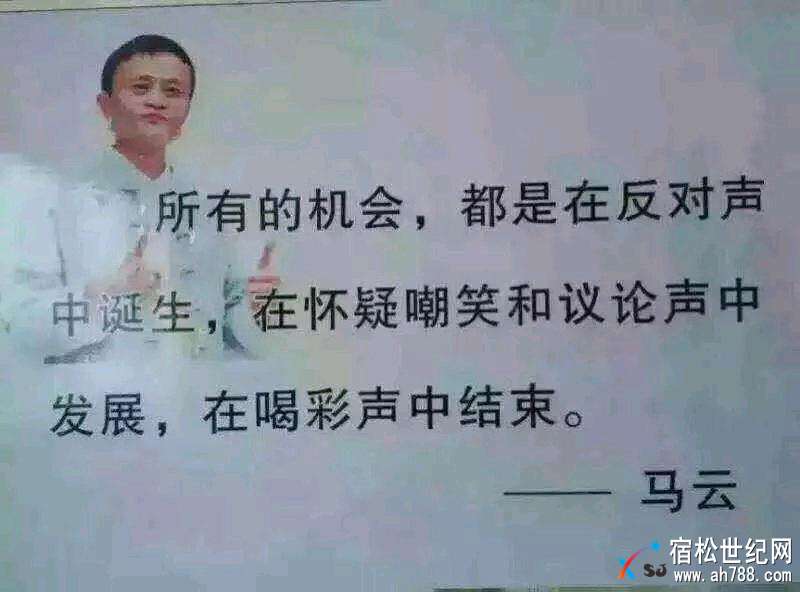 所有的机会，都是在反对声
中诞生，在怀疑嘲笑和议论声中
发展，在喝彩声中结束。
—— 马云
SJ 宿松世纪网
www.ah788.com